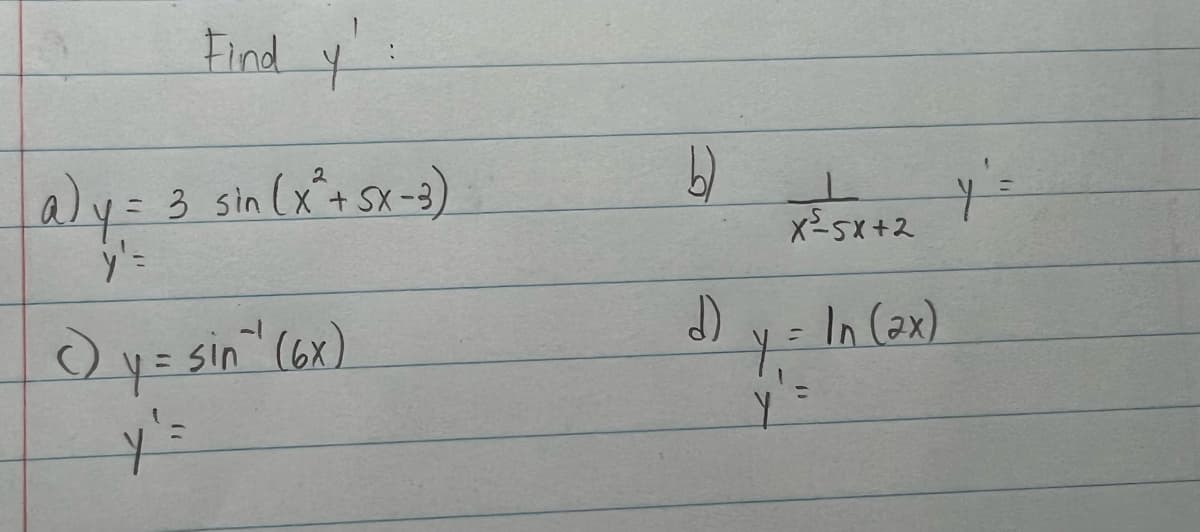 Find y' :
a) y = 3 sin (x² + 5x - 3)
y' =
b) 1/(x⁵ - 5x + 2) y' =
c) y = sin⁻¹ (6x)
y' =
d) y = ln (2x)
y' =